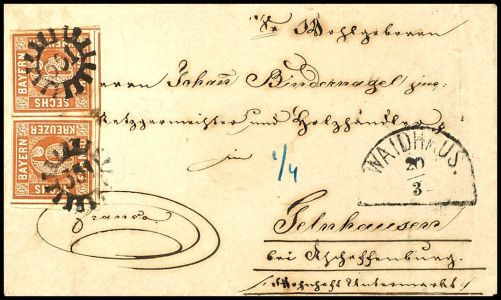 Sr Wohlgeboren
Herrn Johann Bindernagel jun:
Metzgermeister und Holzhändler
in
1/4
Gelnhausen
bei Aschaffenburg.
Franco
WAIDHAUS.
20
3
BAYERN
SECHS
KREUZER
BAYERN
SECHS
KREUZER